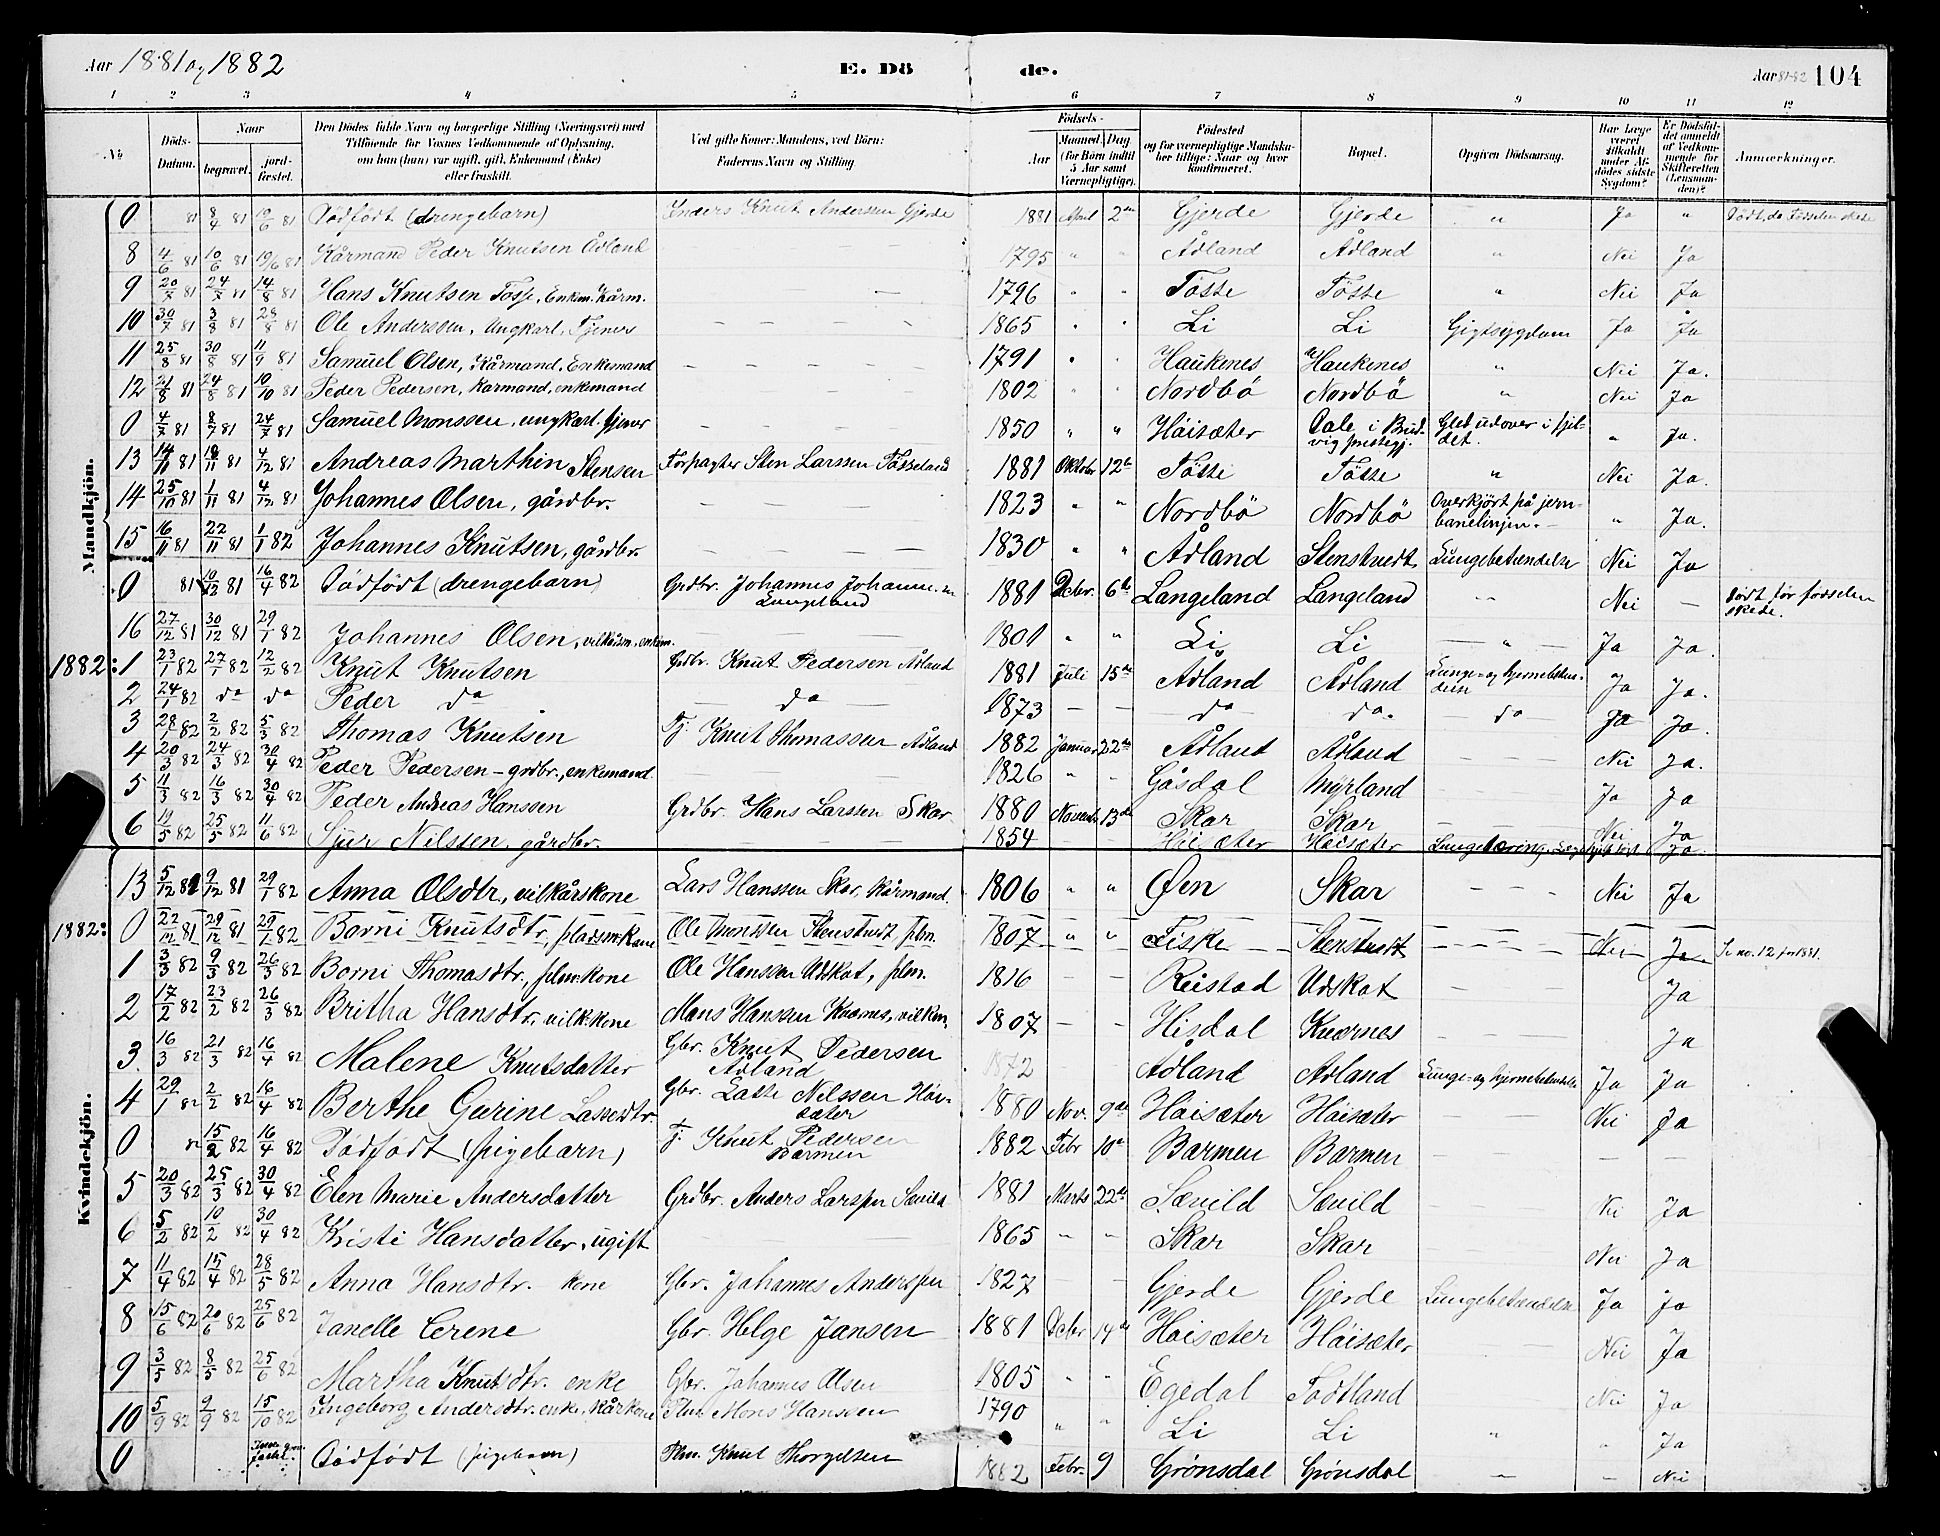 Aar 1881 og 1882 E. Dö de. Aar 81-82 104
1 2 3 4 5 6 7 8 9 10 11 12
No Döds-Datum. Naar begravet. jord-fæstet. Den Dödes fulde Navn og borgerlige Stilling (Næringsvei) med Tilföiende for Voxnes Vedkommende af Oplysning, om han (hun) var ugift, gift, Enkemand (Enke) eller fraskilt. Ved gifte Koner: Mandens, ved Börn: Faderens Navn og Stilling. Födsels- Aar Maaned. Dag. (for Börn indtil 5 Aar samt Værnepligtige). Födested og for værnepligtige Mandskaber tillige: Naar og hvor konfirmeret. Bopæl. Opgiven Dödsaarsag. Har Læge været tilkaldt under Afdödes sidste Sygdom? Er Dödsfaldet anmeldt af Vedkommende for Skifteretten (Lensmanden)? Anmærkninger.
Mandkjön.
0 81 8/4 81 19/6 81 Dödfödt (drengebarn) Inders Knut Anderssen Gjerde 1881 April 2den Gjerde Gjerde " Ja " Födt, da Födselen skede
8 4/6 81 10/6 81 19/6 81 Kårmand Peder Knutsen Ådland — — 1795 " " Ådland Ådland " Nei Ja
9 20/7 81 24/7 81 14/8 81 Hans Knutsen Tösse, Enkm. Kårm. — 1796 " " Tösse Tösse " Nei Ja
10 30/7 81 3/8 81 28/8 81 Ole Anderssen, Ungkarl, Tjener — — 1865 " " Li Li Gigtsygdom Ja Ja
11 25/8 81 30/8 81 11/9 81 Samuel Olsen, Kårmand, Enkemand — — — — 1791 " Haukenes Haukenes " Nei Ja.
12 21/8 81 24/8 81 10/10 81 Peder Pedersen, Kårmand, enkemand 1802 " " Nordbö Nordbö " Nei Ja
0 4/7 81 8/7 81 24/7 81 Samuel Monssen, ungkarl. tjener — — — 1850 " " Håisæter Dale i Brudvig prestegj. Gled udover i fjeldet. " Ja.
13 14/11 81 18/11 81 4/12 81 Andreas Marthin Stensen Forpagter Sten Larssen Tösseland 1881 Oktober 12te Tösse Tösse " Nei Ja.
14 25/10 81 1/11 81 4/12 81 Johannes Olsen, gårdbr. — — 1823 " " Nordbö Nordbö Overkjört på jernbanelinjen. — " Ja.
15 16/11 81 22/11 81 1/1 82 Johannes Knutsen, gårdbr. — — — — 1830 " " Ådland Stenstvedt Lungebetændelse Nei Ja
0 81 10/12 81 16/4 82 Dödfödt (drengebarn) Grdbr. Johannes Johannessen Langeland 1881 Decbr. 6te Langeland Langeland " Nei — Födt för födselen skede.
16 27/12 81 30/12 81 29/1 82 Johannes Olsen, vilkårsm., enkem. — — 1801 " " Li Li — " — Ja Ja.
1882: 1 23/1 82 27/1 82 12/2 82 Knut Knutsen Grdbr. Knut Pedersen Ådland 1881 Juli 15de Ådland Ådland Lunge- og hjernebetændelse Ja Ja.
2 24/1 82 do do Peder do — do — 1873 — — do — do. — do — Ja Ja.
3 28/1 82 2/2 82 5/3 82 Thomas Knutsen Tj. Knut Thomassen Ådland 1882 Januar 22de Ådland Ådland — — — Nei Ja.
4 20/3 82 24/3 82 30/4 82 Peder Pedersen — grdbr., enkemand — — 1826 " — Gåsdal Myrland — — Ja Ja
5 11/3 82 16/3 82 30/4 82 Peder Andreas Hanssen Grdbr. Hans Larssen Skar 1880 Novembr 13de Skar Skar — Nei Ja
6 19/5 82 25/5 82 11/6 82 Sjur Nilssen, gårdbr. — — 1854 — — Håisæter Håisæter Lungetæring Ja.
Kvindekjön.
13 5/12 81 9/12 81 29/1 82 Anna Olsdtr., vilkårskone Lars Hanssen Skar, Kårmand 1806 " " Öen Skar — " — Nei Ja
1882: 0 22/12 81 29/12 81 29/1 82 Borni Knutsdtr., pladsm:kone Ole Monssen Stenstvedt, plm. 1807 " " Fiske Stenstvedt — — — Nei Ja Se no. 12 for 1881.
1 3/3 82 9/3 82 26/3 82 Borni Thomasdtr., plm:kone Ole Hanssen Udskot, plm. 1816 — — Reistad Udskot — — Ja
2 17/2 82 23/2 82 26/3 82 Britha Hansdtr., vilk:kone Mons Hanssen Kvernes, vilkm. 1807 — — Hisdal Kvernes — — Ja
3. 16/3 82 21/3 82 16/4 82 Malene Knutsdatter Gbr. Knut Pedersen Ådland 1872 Ådland Ådland Lunge- og hjernebetændelse Ja Ja
4 29/1 82 2/2 82 16/4 82 Berthe Gurine Lassesdtr. Gbr. Lasse Nilssen Håisæter 1880 Nov. 9de Håisæter Håisæter — — Nei Ja
0 15/2 82 16/4 82 Dödfödt (pigebarn) Tj. Knut Pedersen Barmen 1882 Febr 10e Barmen Barmen — — — —
5 20/3 82 25/3 82 30/4 82 Elen Marie Andersdatter Grdbr. Anders Larssen Sævild 1881 Marts 22de Sævild Sævild Nei Ja
6 5/2 82 10/2 82 30/4 82 Kristi Hansdatter, ugift — — — 1865 " " Skar Skar — — Nei Ja
7 11/4 82 15/4 82 28/5 82 Anna Hansdtr. kone Gbr. Johannes Anderssen 1827 Gjerde Gjerde Lungebetændelse Ja Ja
8 15/6 82 20/6 82 25/6 82 Janelle Cerene Gbr. Helge Jansen 1881 Decbr 14de Håisæter Håisæter — — Nei Ja
9 3/5 82 8/5 82 25/6 82 Martha Knutsdtr. enke Gbr. Johannes Olsen 1805 " " Egedal Todtland Nei Ja
10 5/9 82 9/9 82 15/10 82 Ingeborg Andersdtr. enke, kårkone Plm Mons Hanssen 1790 " " Li Li " " Ja
0 Dödfödt (pigebarn) Plm. Knut Thorgilsen 1882 Febr. 9 Grönsdal Grönsdal — " Nei